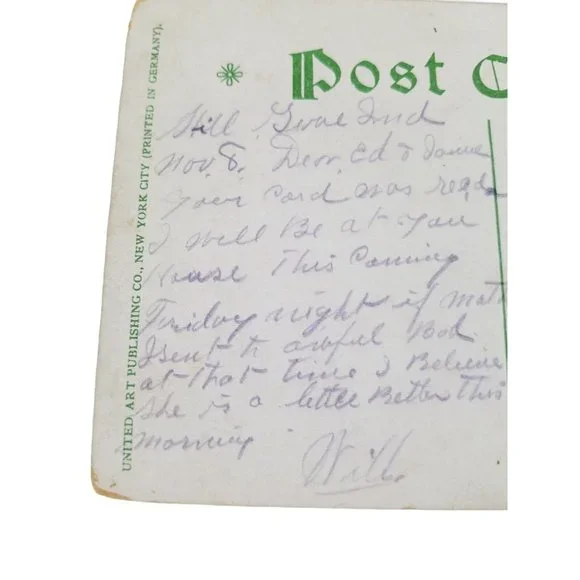 UNITED ART PUBLISHING CO., NEW YORK CITY (PRINTED IN GERMANY).
Post C
Hill Grove Ind
Nov. 8. Dear Ed &
your Card was
I will Be at you
House This Coming
Friday night if
Isent to awful Bad
at that time I Believe
She is a Better This
morning
Will.